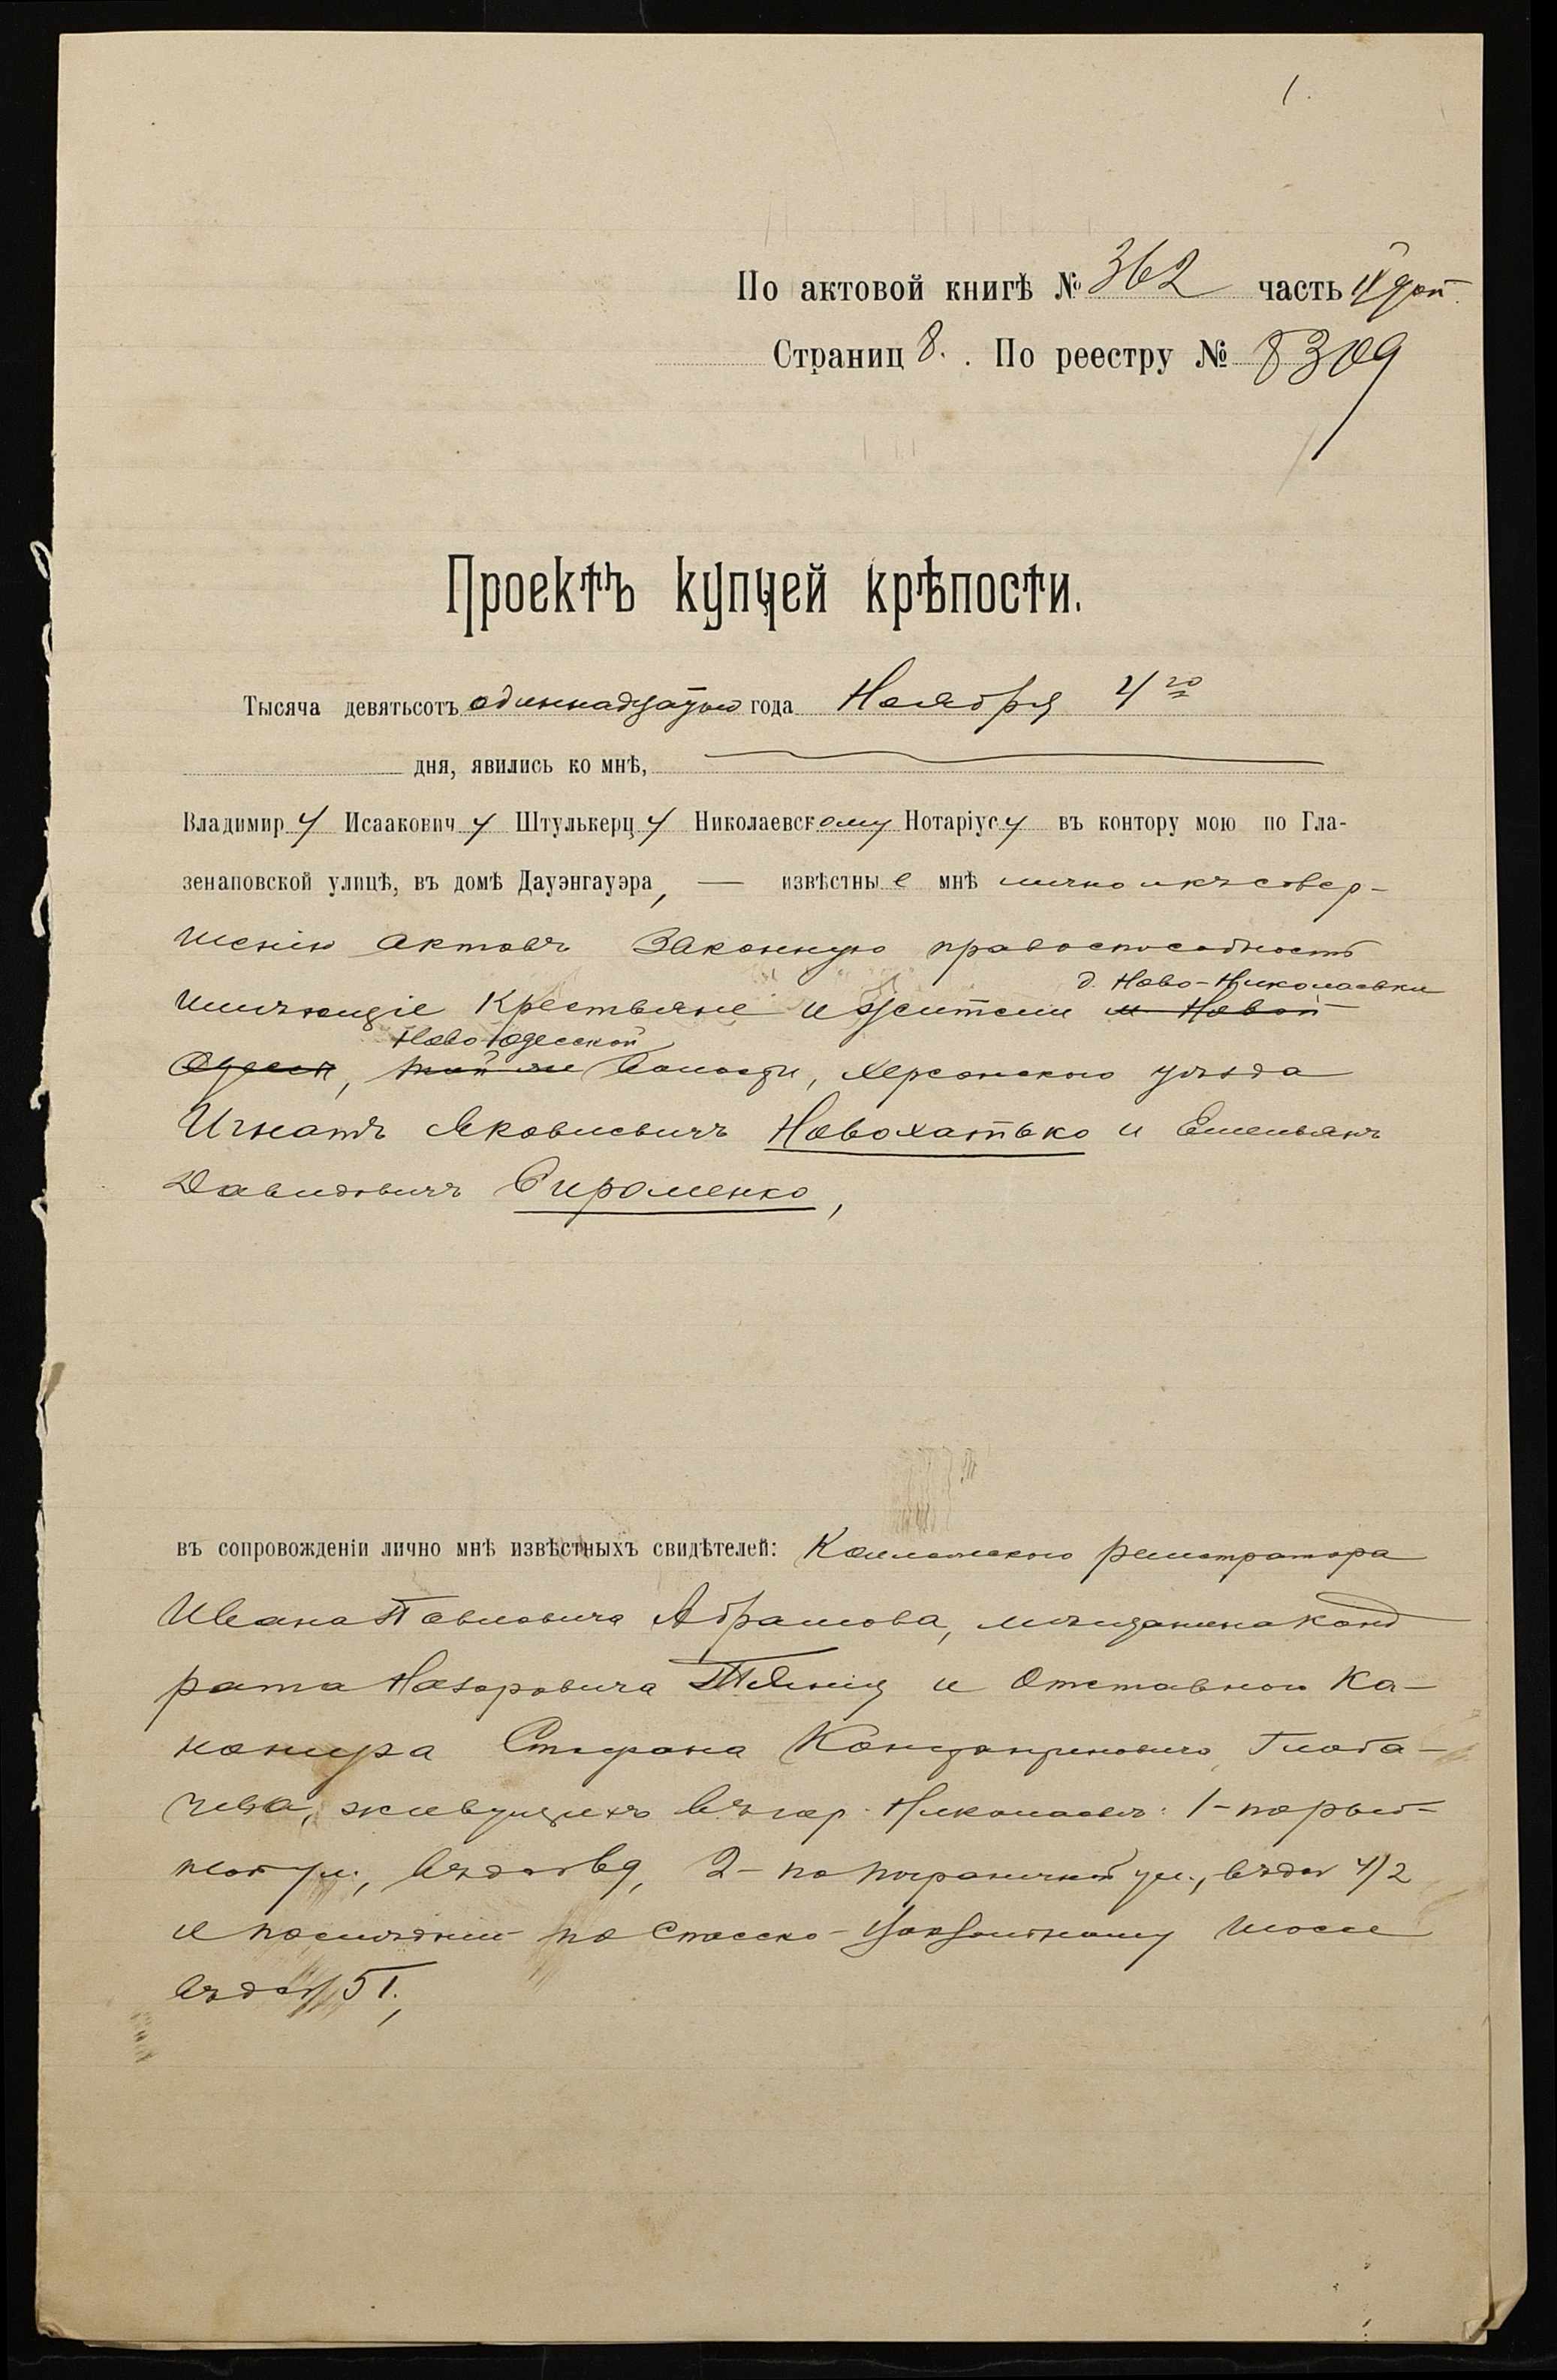 1.
По актовой книгѣ № 362 часть IV доп.
Страниц 8. По реестру № 8309
Проектъ купчей крѣпости.
Тысяча девятьсотъ одиннадцатаго года Ноября 4го
дня, явились ко мнѣ,
Владимиру Исааковичу Штулькерцу Николаевскому Нотаріусу въ контору мою по Гла-
зенаповской улицѣ, въ домѣ Дауэнгауэра, — извѣстные мнѣ лично и къ совер-
шенію актовъ законную правоспособность
д. Ново-Николаевки
имѣющіе крестьяне и жители м. Новой
Ново-Одесской
Одессы, той же волости, Херсонскаго уѣзда
Игнатъ Яковлевичъ Новохатько и Емельянъ
Давидовичъ Сироменко,
въ сопровожденіи лично мнѣ извѣстныхъ свидѣтелей: Коллежскаго регистратора
Ивана Павловича Абрамова, мѣщанина Конд
рата Назаровича и Отставнаго Ка-
нонира Стефана Константиновича Глоба-
чева, живущихъ въ гор. Николаевѣ: 1-
ул., въ д. № 2- по Пограничной ул., въ д. № 4/2
и послѣдній по Спасско- шоссе
въ д. № 51.,